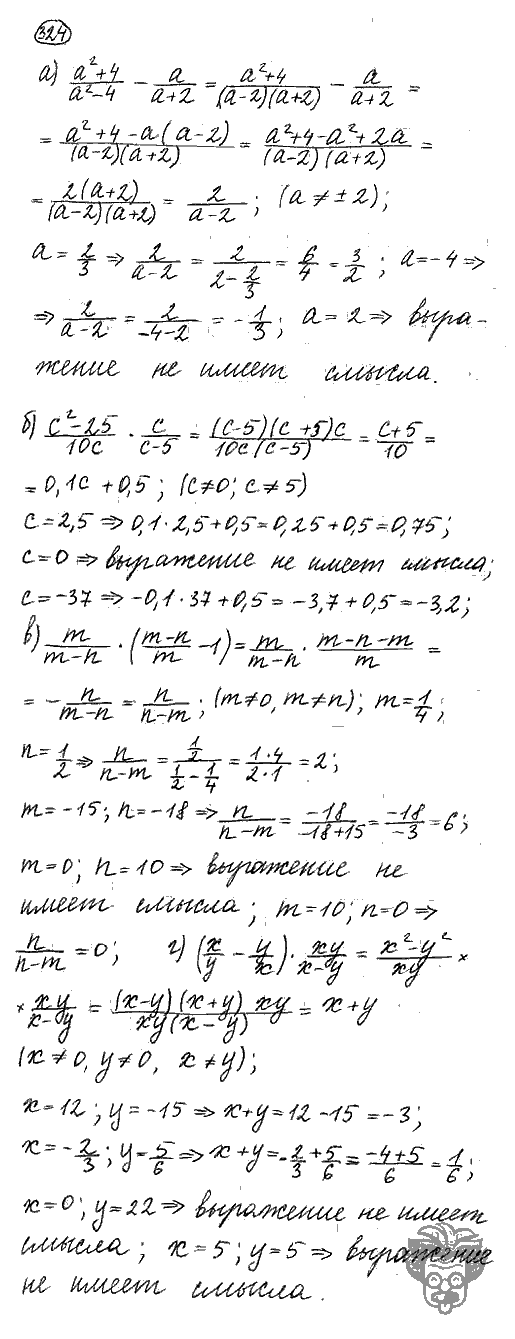 324
а) (a²+4)/(a²-4) - a/(a+2) = (a²+4)/((a-2)(a+2)) - a/(a+2) =
= (a²+4-a(a-2))/((a-2)(a+2)) = (a²+4-a²+2a)/((a-2)(a+2)) =
= 2(a+2)/((a-2)(a+2)) = 2/(a-2); (a≠±2);
a = 2/3 ⇒ 2/(a-2) = 2/(2-2/3) = 6/4 = 3/2; a=-4⇒
⇒ 2/(a-2) = 2/(-4-2) = -1/3; a=2⇒ выра-
жение не имеет смысла.
б) (c²-25)/10c · c/(c-5) = (c-5)(c+5)c/(10c(c-5)) = (c+5)/10 =
= 0,1c + 0,5; (c≠0; c≠5)
c=2,5 ⇒ 0,1·2,5+0,5=0,25+0,5=0,75;
c=0 ⇒ выражение не имеет смысла;
c=-37 ⇒ -0,1·37+0,5=-3,7+0,5=-3,2;
в) m/(m-n) · ((m-n)/m - 1) = m/(m-n) · (m-n-m)/m =
= - n/(m-n) = n/(n-m); (m≠0, m≠n); m=1/4;
n=1/2 ⇒ n/(n-m) = (1/2)/(1/2-1/4) = (1·4)/(2·1) = 2;
m=-15; n=-18 ⇒ n/(n-m) = -18/(-18+15) = -18/-3 = 6;
m=0; n=10 ⇒ выражение не
имеет смысла; m=10; n=0 ⇒
n/(n-m) = 0; г) (x/y - y/x) · xy/(x-y) = (x²-y²)/xy ×
× xy/(x-y) = (x-y)(x+y) xy/(xy(x-y)) = x+y
(x≠0, y≠0, x≠y);
x=12; y=-15 ⇒ x+y=12-15=-3;
x=-2/3; y=5/6 ⇒ x+y=-2/3+5/6 = (-4+5)/6 = 1/6;
x=0; y=22 ⇒ выражение не имеет
смысла; x=5; y=5 ⇒ выражение
не имеет смысла.